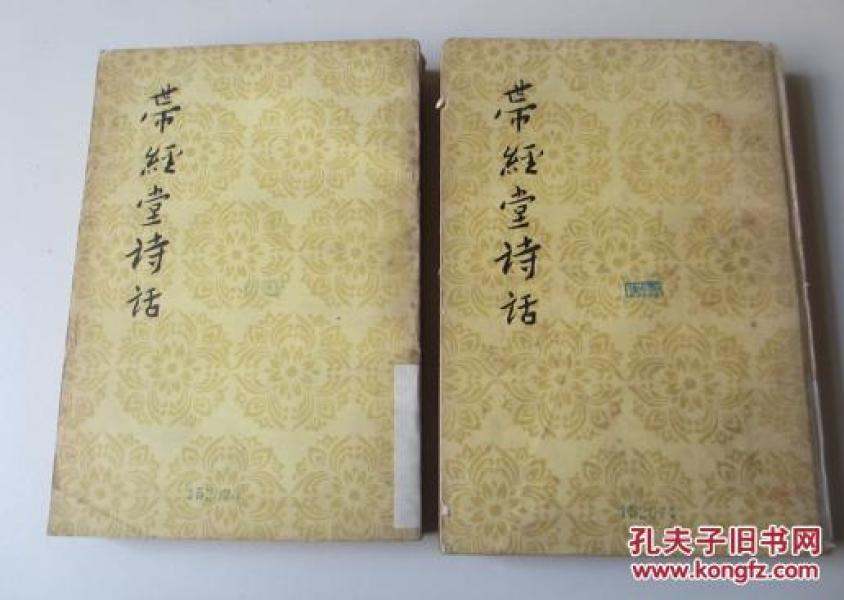 帶經堂詩話
帶經堂詩話
孔夫子旧书网
www.kongfz.com